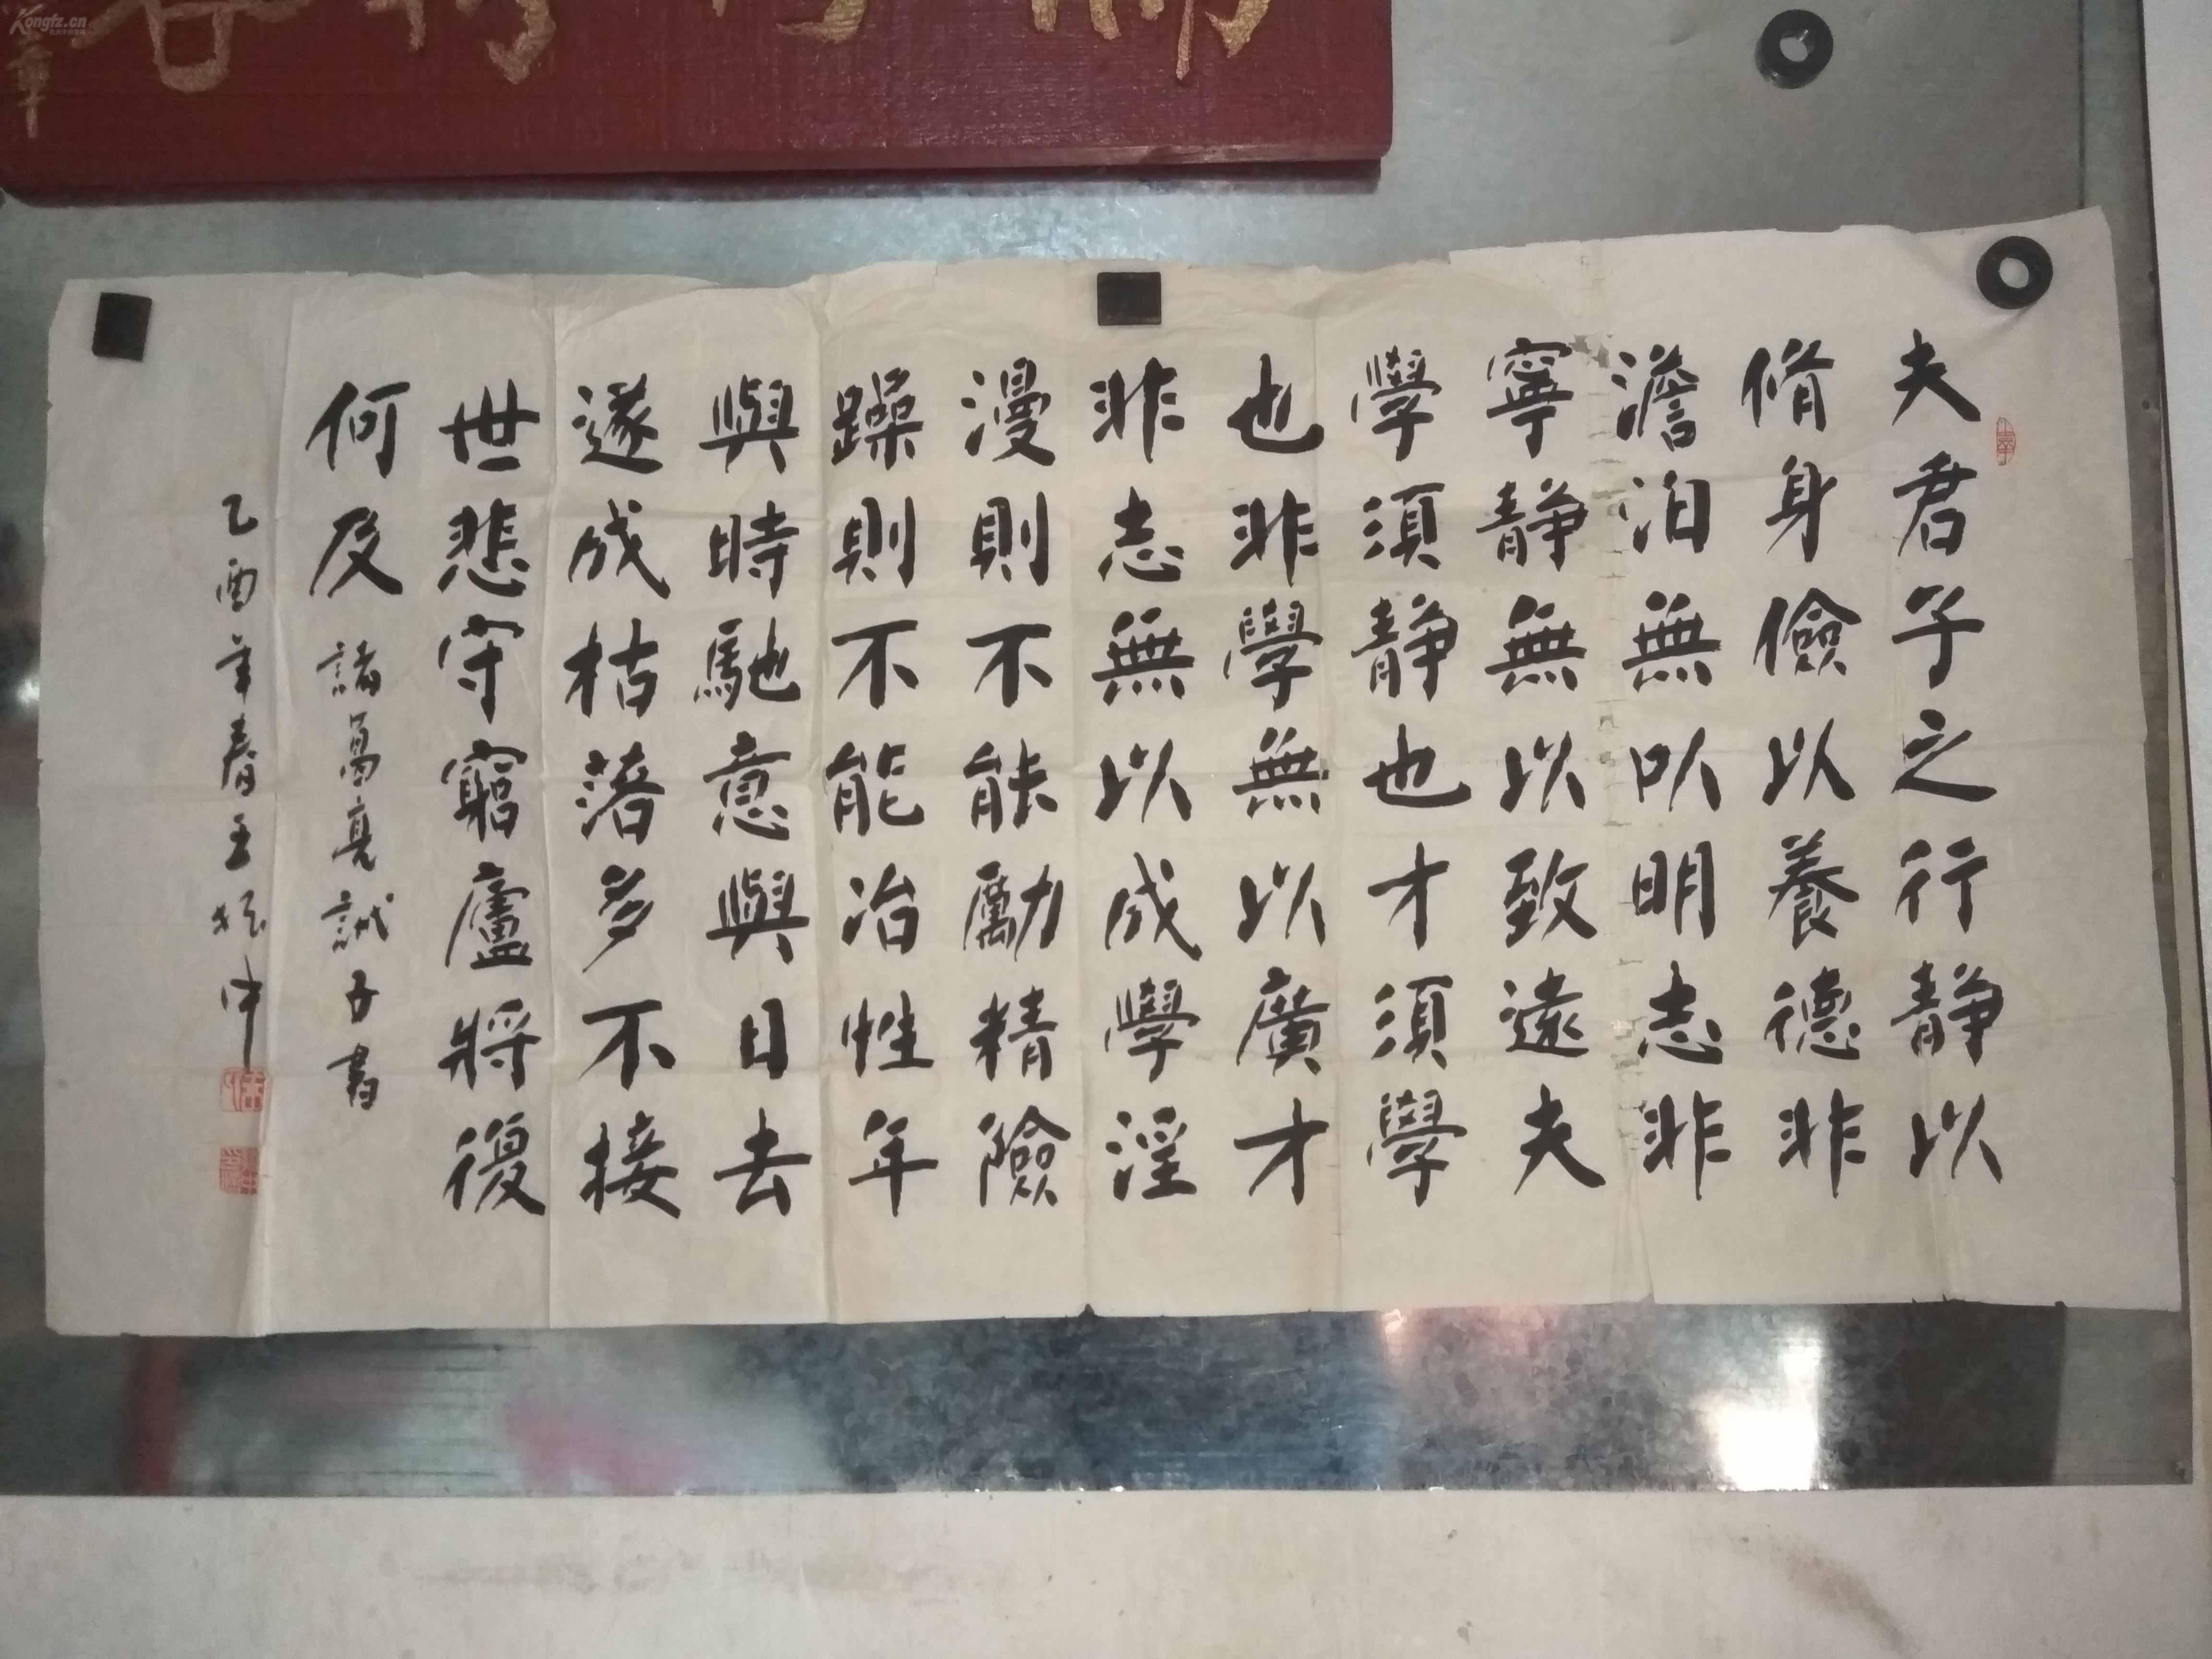 夫君子之行静以
脩身儉以養德非
澹泊無以明志非
寧静無以致遠夫
學須静也才須學
也非學無以廣才
非志無以成學淫
漫則不能勵精險
躁則不能冶性年
與時馳意與日去
遂成枯落多不接
世悲守窮廬將復
何及 諸葛亮誡子書
乙酉年春王振中
Kongfz.cn